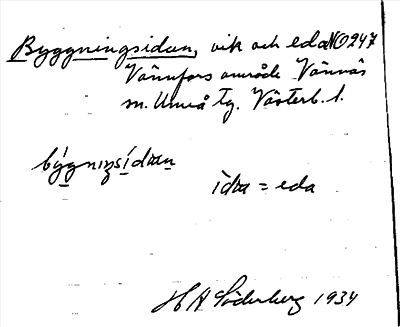 Byggningsidan, vik och eda NO 247
Vännfors område Vännäs
sn. Umeå tg. Västerb. l.
býgnɪŋsídɪan
ìdɪa = eda
H A Söderberg 1934